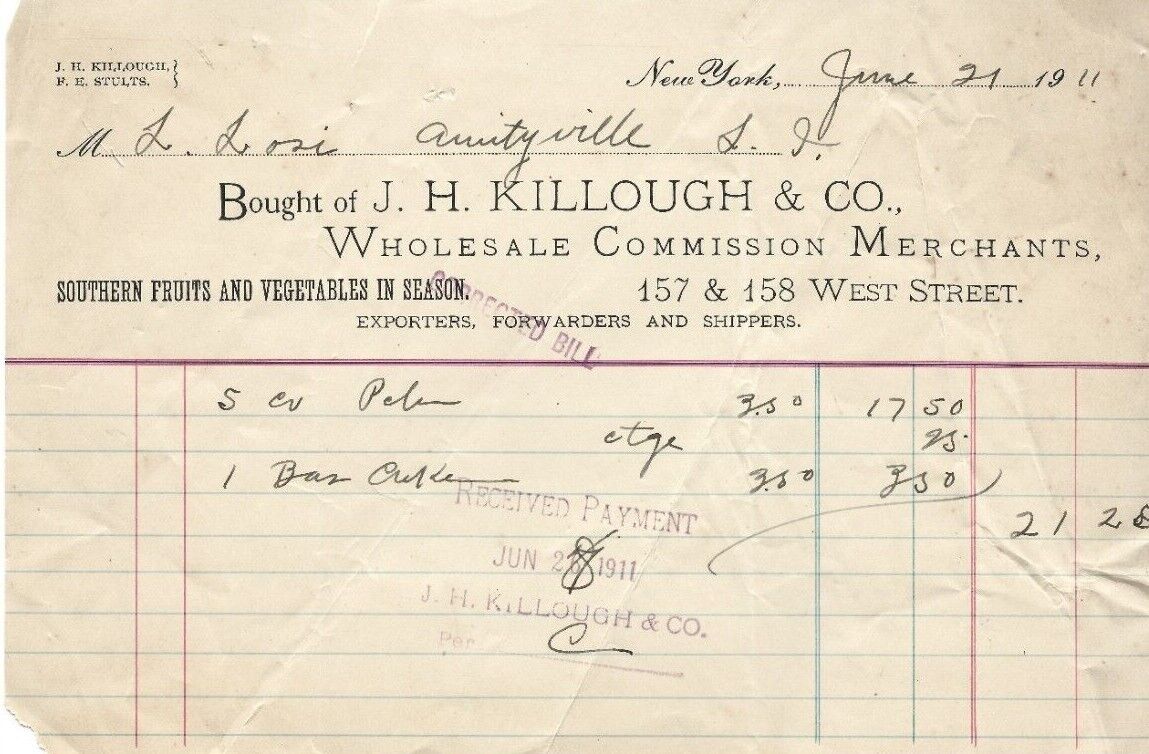 J. H. KILLOUGH,
F. E. STULTS.
New York, June 21 1911
M L. Losi Amityville L. I.
Bought of J. H. KILLOUGH & CO.,
WHOLESALE COMMISSION MERCHANTS,
SOUTHERN FRUITS AND VEGETABLES IN SEASON.
157 & 158 WEST STREET.
EXPORTERS, FORWARDERS AND SHIPPERS.
CORRECTED BILL
5 3.50 17 50
ctge 25
1 3.50 3 50
21 25
RECEIVED PAYMENT
JUN 1911
J. H. KILLOUGH & CO.
Per C